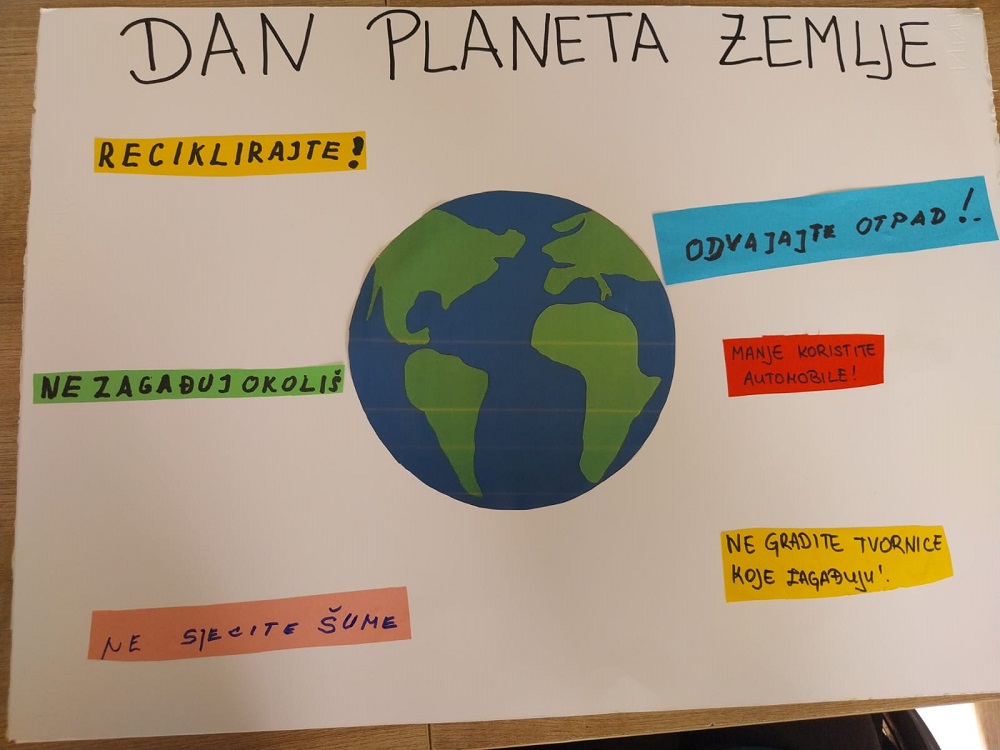 DAN PLANETA ZEMLJE
RECIKLIRAJTE!
ODVAJAJTE OTPAD!
NE ZAGAĐUJ OKOLIŠ
MANJE KORISTITE
AUTOMOBILE!
NE GRADITE TVORNICE
KOJE ZAGAĐUJU!
NE SJECITE ŠUME